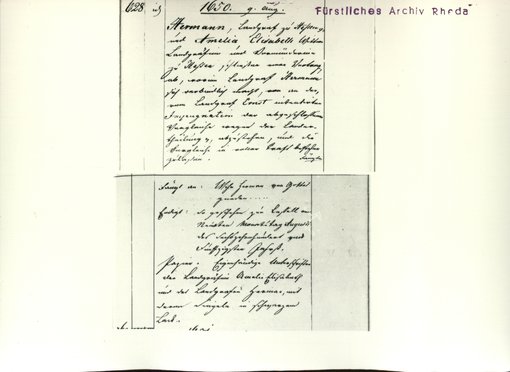 Fürstliches Archiv Rheda
628 1650. 9. Aug.
Hermann, Landgraf zu Hessen,
und Amelia Elisabeth
Landgräfin und Vormünderin
zu Hessen, schließen einen Vertrag,
ab, worin Landgraf Hermann
sich verbindlich macht, von an der,
vom Landgraf Ernst intentirten
Impugnation der abgeschlossenen
Vergleiche wegen der Landes-
theilung abzustehen, und die
Vergleiche in voller Kraft bestehen
zu lassen.
Fängt an: Wir Herman von Gottes
gnaden .....
Endigt: So geschehen zu Cassell am
Neunten Monatstag Augusti
des Sechszehnhundert und
Fünfzigsten Jahres.
Papier. Eigenhändige Unterschriften
der Landgräfin Amelie Elisabeth
und des Landgrafen Herman, mit
deren Siegeln in schwarzem
Lack.